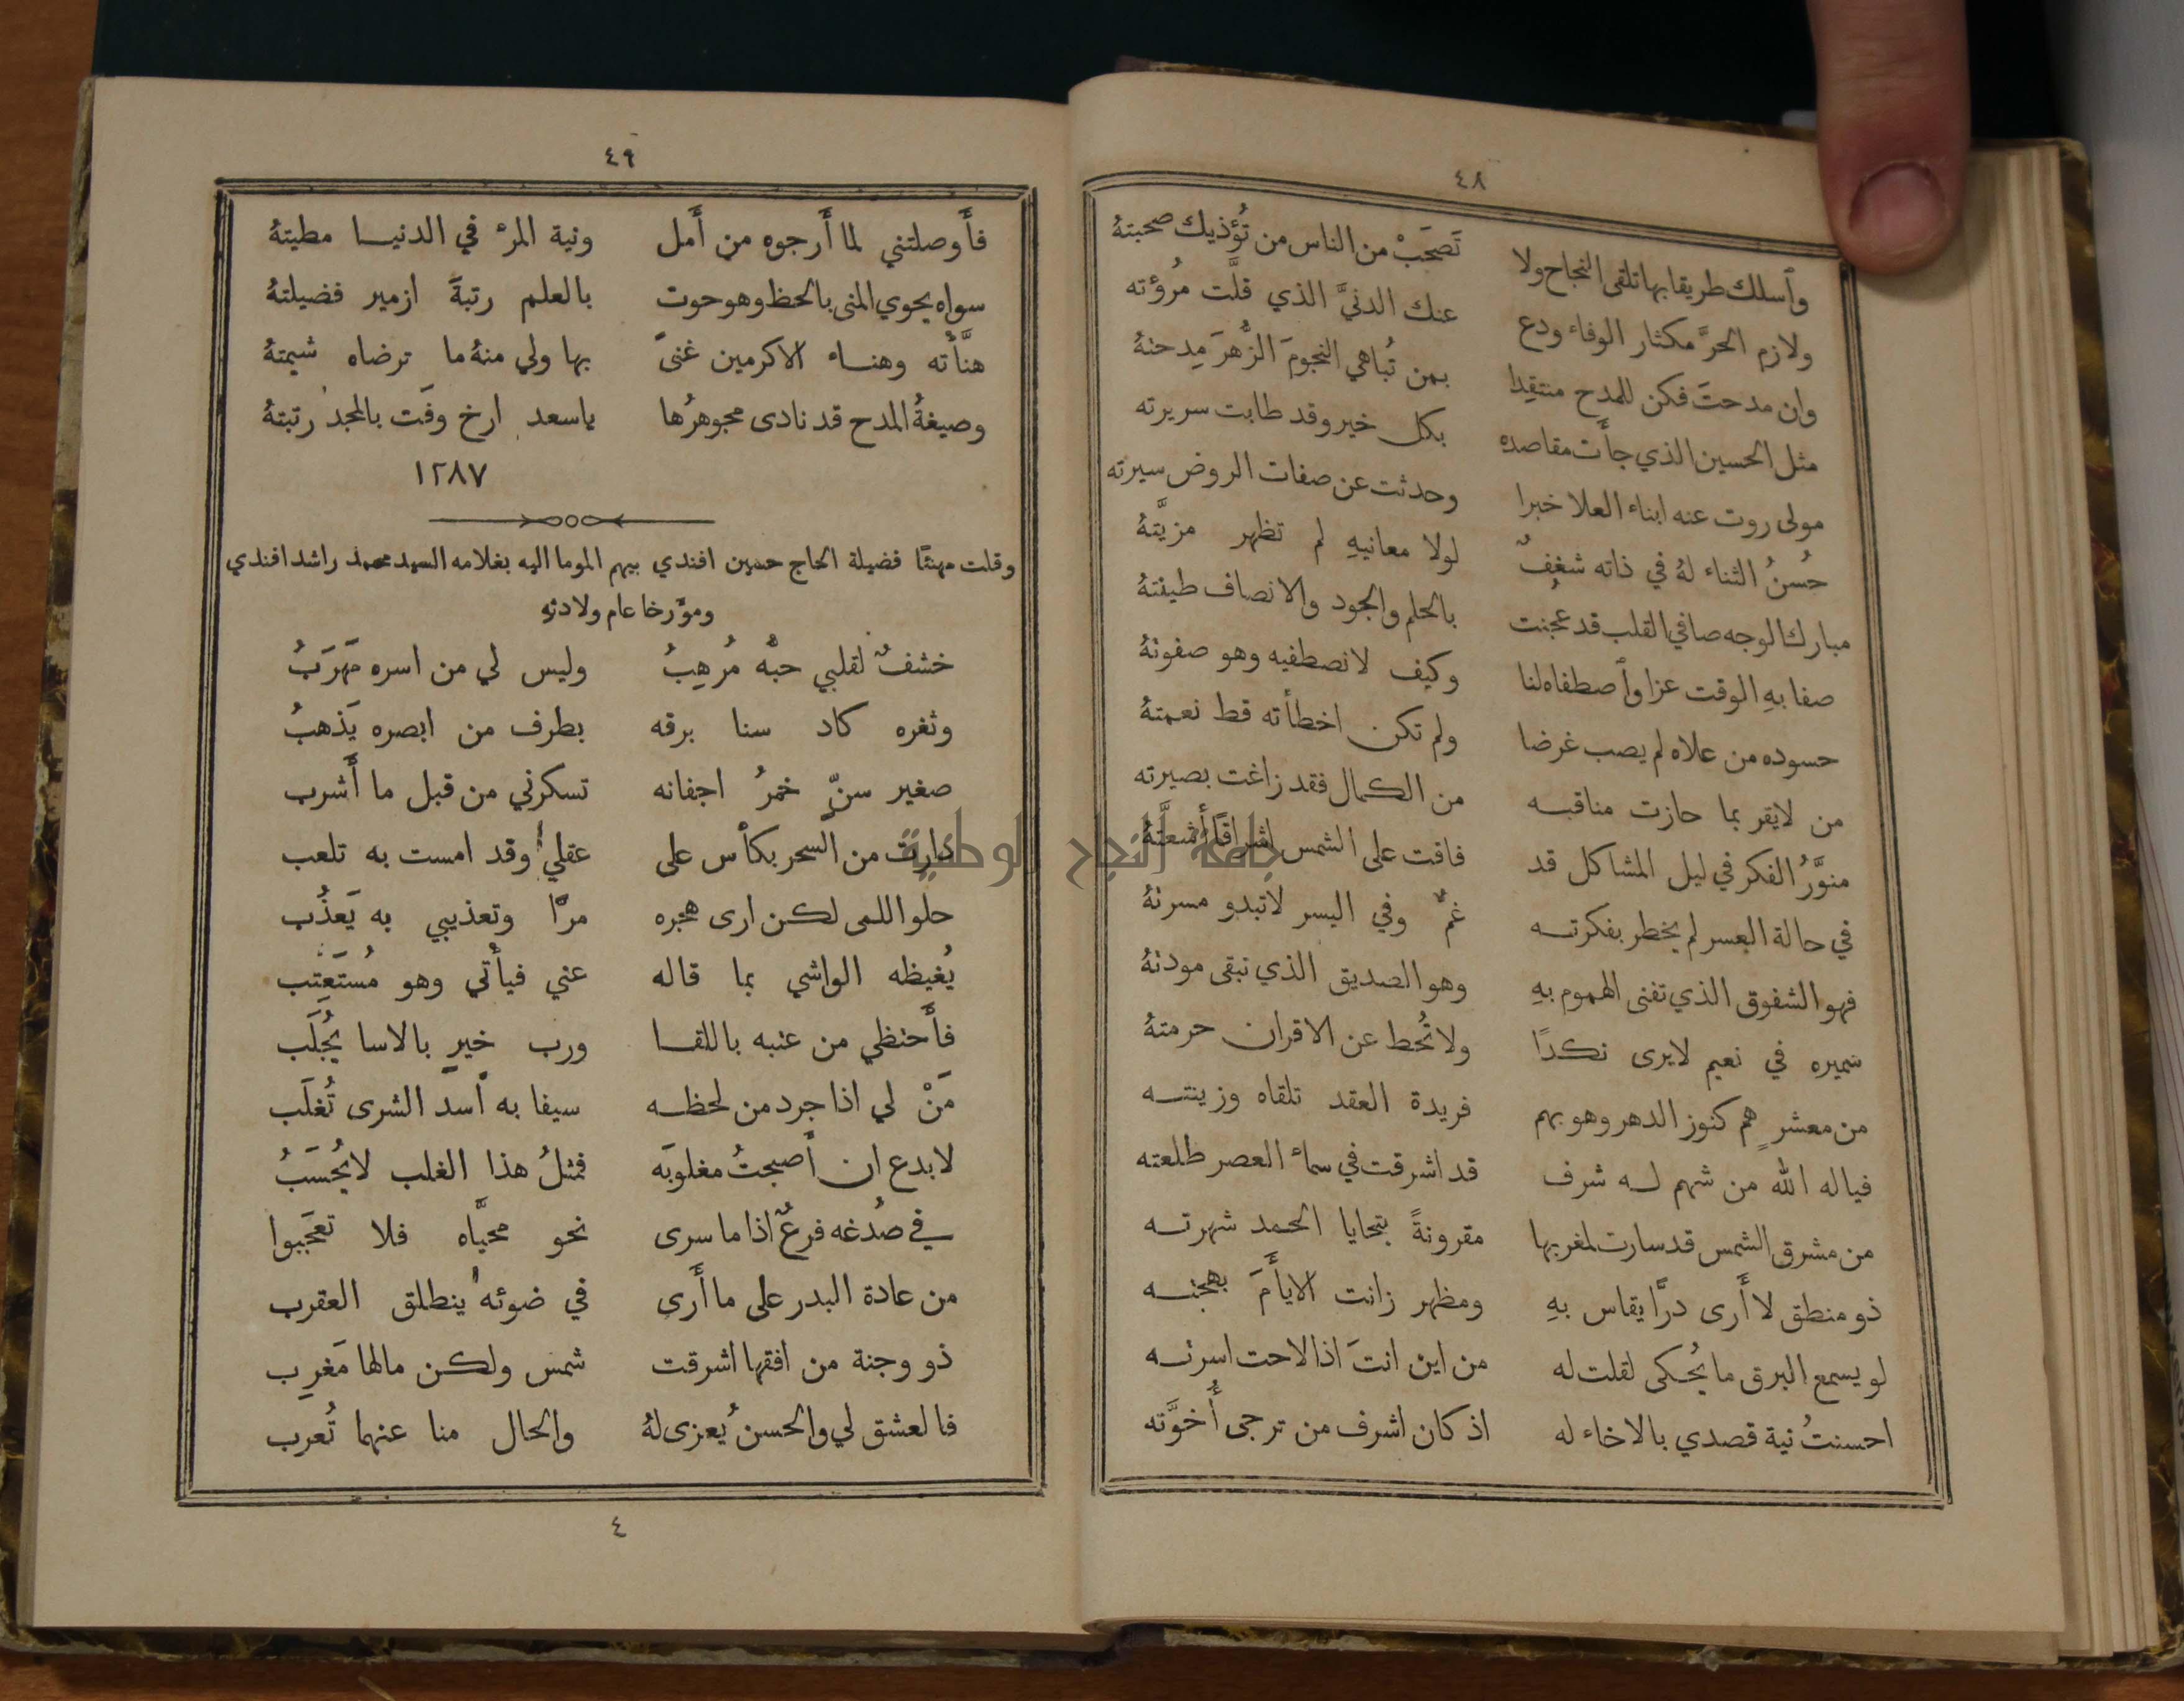 ٤٨
وأسلك طريقا بها تلقى النجاح ولا تَصحَبْ من الناس من تُؤذيك صحبتهُ
ولازم الحرَّ مكثار الوفاء ودع عنك الدنيَّ الذي قلَّت مرُؤته
وان مدحتَ فكن للمدح منتقِدا بمن تُباهي النجومَ الزُّهرَ مِدحتهُ
مثل الحسين الذي جأَت مقاصده بكل خير وقد طابت سريرته
مولى روت عنه ابناء العلا خبرا وحدثت عن صفات الروض سيرته
حُسنُ الثناء لهُ في ذاته شغفٌ لولا معانيهِ لم تظهر مزيَّتهُ
مبارك الوجه صافي القلب قد عُجنت بالحلم والجود والانصاف طينتهُ
صفا بهِ الوقت عزا وأصطفاه لنا وكيف لانصطفيه وهو صفوتهُ
حسوده من علاه لم يصب غرضا ولم تكن اخطأته قط نعمتهُ
من لايقر بما حازت مناقبه من الكمال فقد زاغت بصيرته
منوَّرُ الفكر في ليل المشاكل قد فاقت على الشمس اشراقًا أَشعتَّهُ
في حالة العسر لم يخطر بفكرته غمٌ وفي اليسر لاتبدو مسرتهُ
فهو الشفوق الذي تفنى الهموم بهِ وهو الصديق الذي تبقى مودتهُ
سميره في نعيم لايرى نكدًا ولا تُحط عن الاقران حرمتهُ
من معشرٍ هم كنوز الدهر وهو بهم فريدة العقد تلقاه وزينته
فياله الله من شهم له شرف قد اشرقت في سماء العصر طلعته
من مشرق الشمس قد سارت لمغربها مقرونةً بتحايا الحمد شهرته
ذو منطق لا أَرى درًّا يقاس بهِ ومظهر زانت الايأَمَ بهجته
لو يسمع البرق ما يُحكى لقلت له من اين انتَ اذا لاحت اسرته
احسنتُ نية قصدي بالاخاء له اذ كان اشرف من ترجى أُخوَّته
٤٩
فأَوصلتني لما أَرجوه من أَمل ونية المرء في الدنيا مطيتهُ
سواه يحوي المنى بالحظ وهو حوت بالعلم رتبةَ ازمير فضيلتهُ
هنَّأته وهناء الاكرمين غنىً بها ولي منهُ ما ترضاه شيمتهُ
وصيغةُ المدح قد نادى مجوهرُها ياسعد ارخ وفَت بالمجد رتبتهُ
١٢٨٧
وقلت مهنئًا فضيلة الحاج حسين افندي بيهم الموما اليه بغلامه السيد محمد راشد افندي
ومؤرخا عام ولادته
خشفٌ لقلبي حبُّه مُرهِبُ وليس لي من اسره مَهرَبُ
وثغره كاد سنا برقه بطرف من ابصره يَذهبُ
صغير سنّ خمرُ اجفانه تسكرني من قبل ما أَشرب
دارت من السحر بكأس على عقلي وقد امست به تلعب
حلو اللمى لكن ارى هجره مرًّا وتعذيبي به يَعذُب
يُغيظه الواشي بما قاله عني فيأتي وهو مُستَعتِب
فأَحتظي من عتبه باللقا ورب خيرٍ بالاسا يُجلَب
مَنْ لي اذا جرد من لحظه سيفا به أسد الشرى تُغلَب
لابدع ان أَصبحتُ مغلوبَه فمثلُ هذا الغلب لايُحسَبُ
في صُدغه فرعٌ اذا ما سرى نحو محيَّاه فلا تعجَبوا
من عادة البدر على ما أَرى في ضوئه ينطلق العقرب
ذو وجنة من افقها اشرقت شمس ولكن مالها مَغرِب
فالعشق لي والحسن يُعزى لهُ والحال منا عنهما تُعرب
٤
جامعة النجاح الوطنية